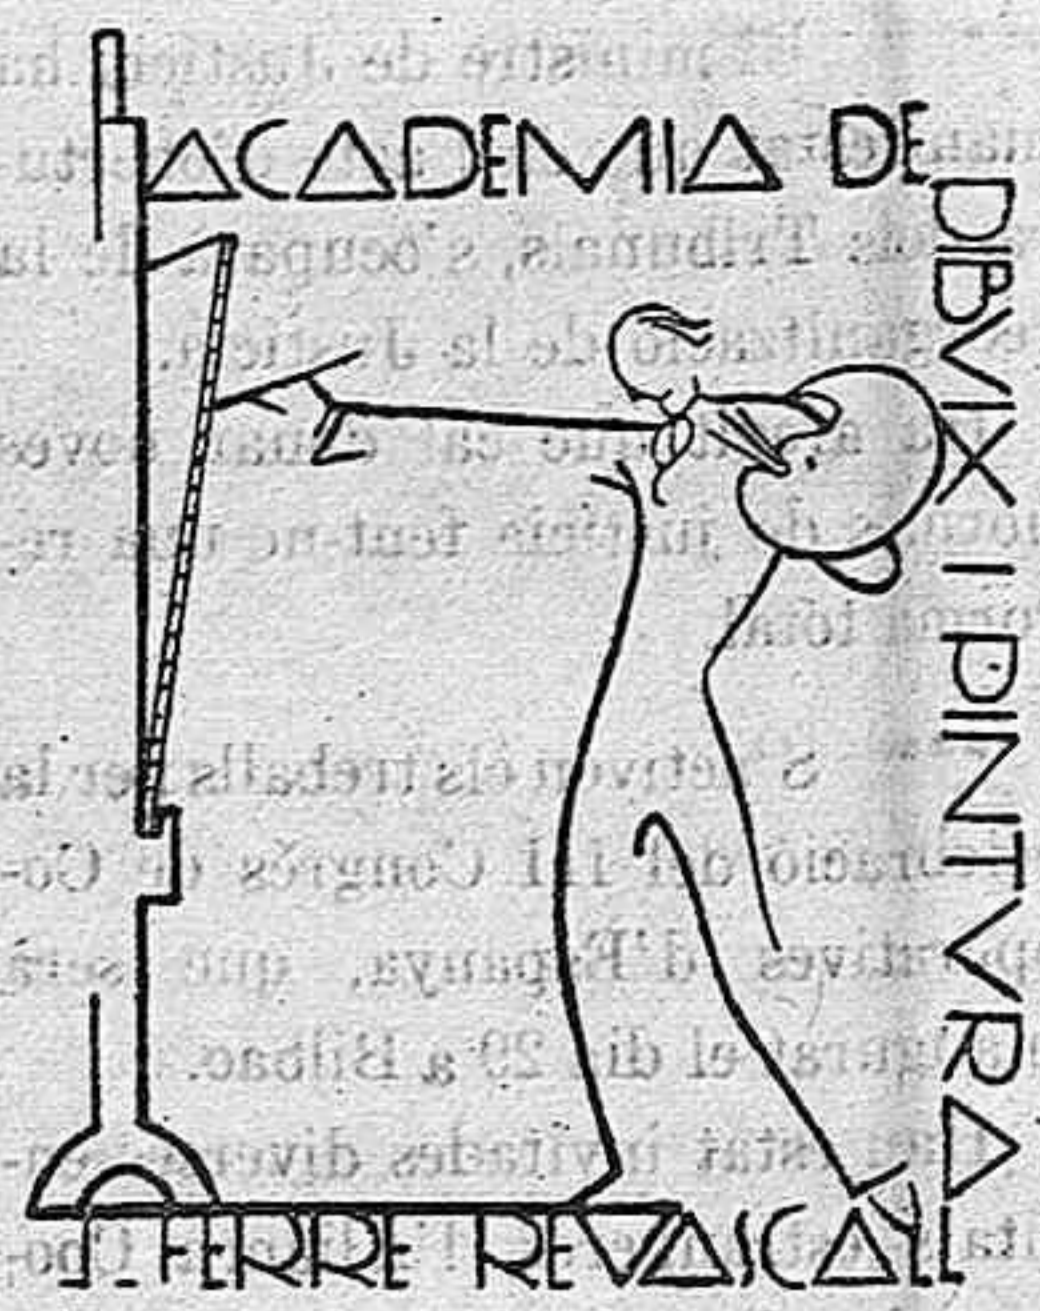 ACADEMIA DE
DIBVIX I PINTVRA
J. FERRE REVASCALL